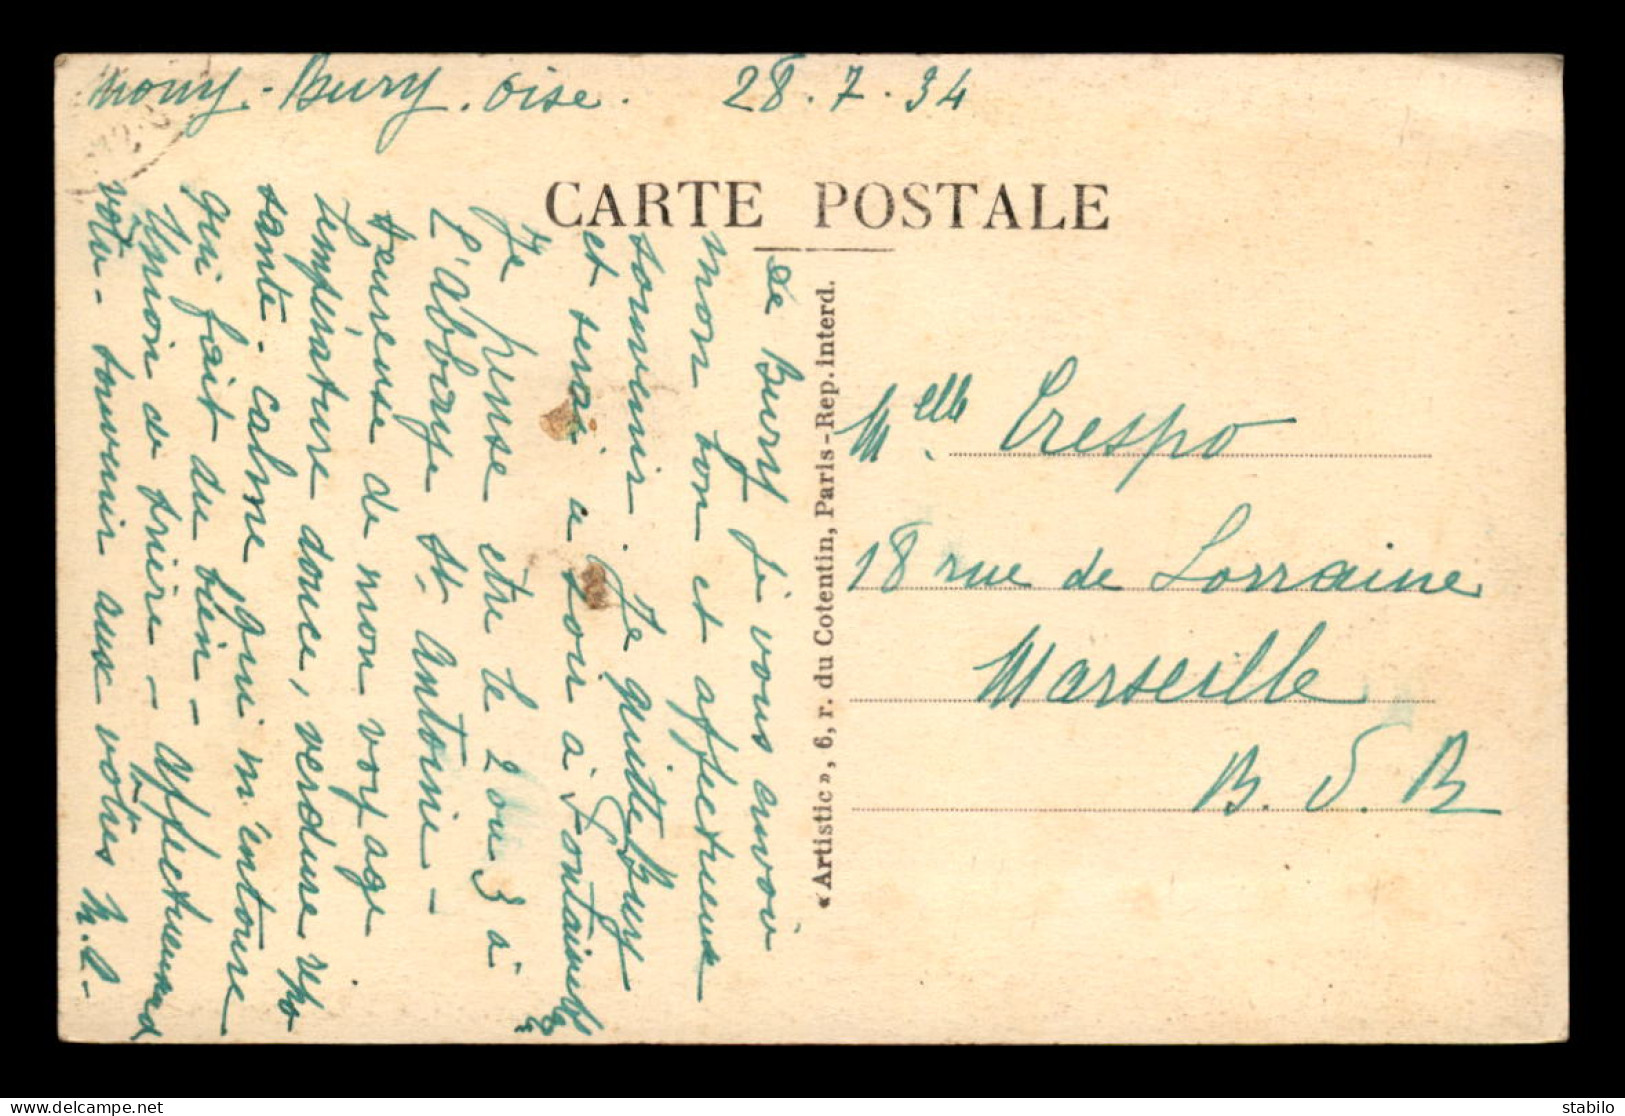 Mouy - Bury. Oise. 28.7.34
CARTE POSTALE
De Bury je vous envoie
mon bon et affectueux
souvenir. Je quitte Bury
et serai ce soir à Fontainebl.
Je pense etre le 2 ou 3 à
l'abbaye St. Antoine -
heureuse de mon voyage
température douce, verdure
santé. calme qui m'entoure
qui fait du bien -
Union de prière - Affectueusement
votre - souvenir aux vôtres
«Artistic», 6, r. du Cotentin, Paris - Rep. interd.
Melle. Crespo
18 rue de Lorraine
Marseille
B. D. R
delcampe.net
stabilo